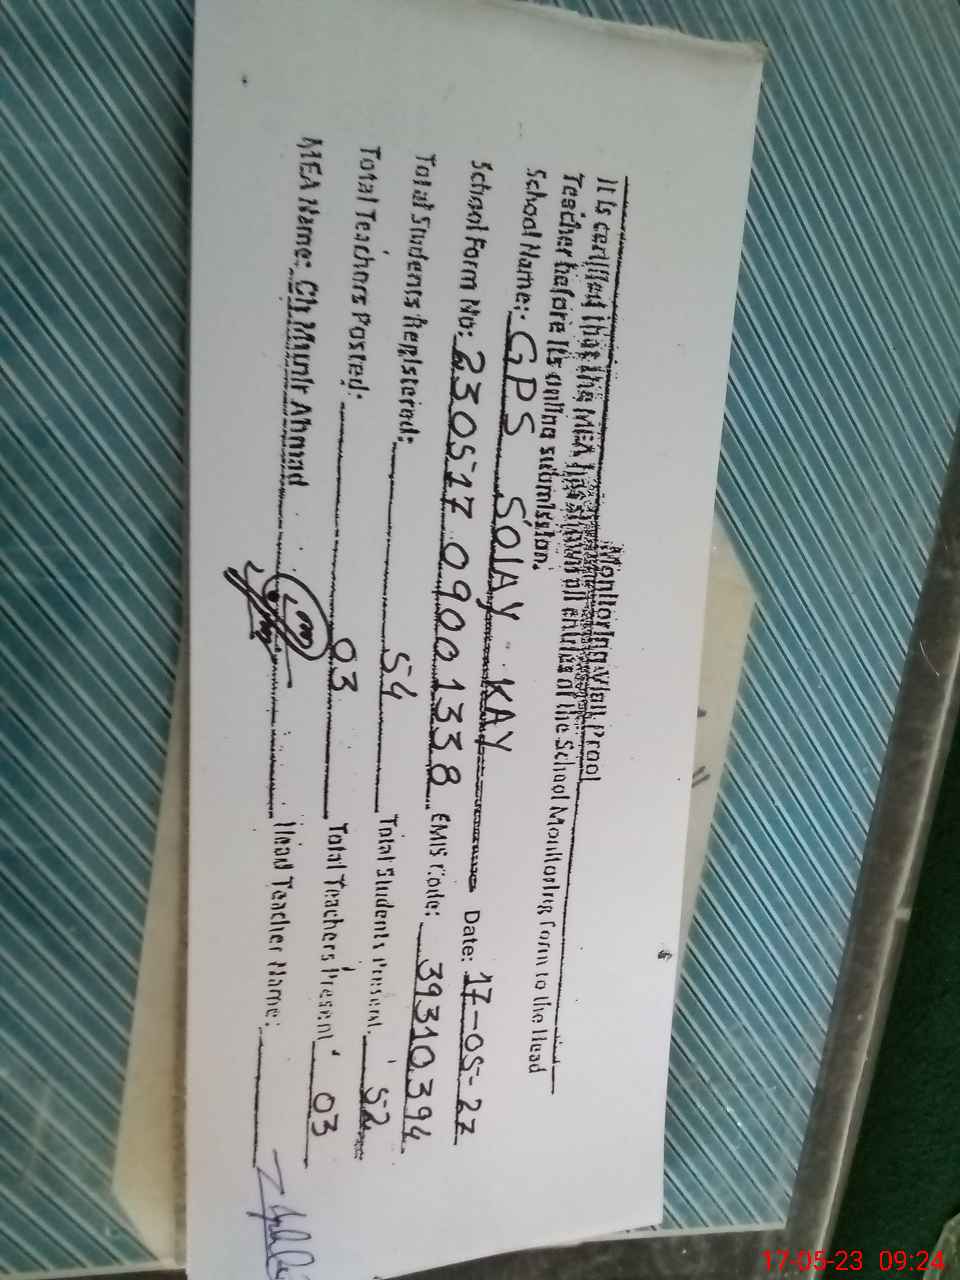 Monitoring Visit Proof
It is certified that the MEA has shown all entries of the School Monitoring Form to the Head
Teacher before its online submission.
School Name: GPS SOIAY KAY Date: 17-05-22
School Form No: 230517 0900 1338 EMIS Code: 39310394
Total Students Registered: 54 Total Students Present: 52
Total Teachers Posted: 03 Total Teachers Present 03
MEA Name: Ch Munir Ahmad Head Teacher Name:
17-05-23 09:24